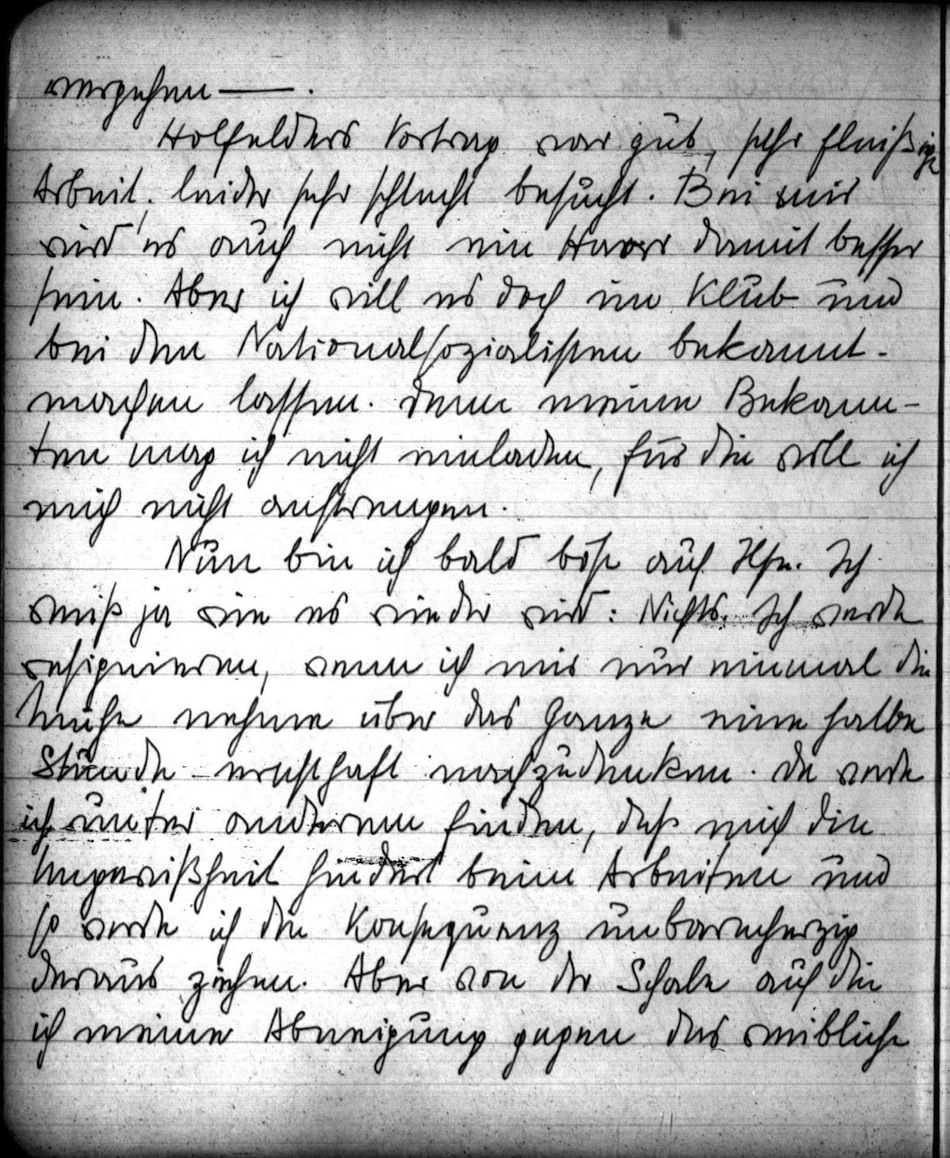 vergehen —.
Holfelders Vortrag war gut, sehr fleißige
Arbeit, leider sehr schlecht besucht. Bei mir
wird es auch nicht ein Haar damit besser
sein. Aber ich will es doch im Klub und
bei den Nationalsozialisten bekannt-
machen lassen. Denn meine Bekann-
ten mag ich nicht einladen, für die will ich
mich nicht anstrengen.
Nun bin ich bald böse auf Ilse. Ich
weiß ja wie es wieder wird: Nichts. Ich werde
resignieren, wenn ich mir nur einmal die
Mühe nehme über das Ganze eine halbe
Stunde ernsthaft nachzudenken. Da werde
ich unter anderem finden, daß mich die
Ungewißheit hindert beim Arbeiten und
so werde ich die Konsequenz unbarmherzig
daraus ziehen. Aber von der Schale auf die
ich meine Abneigung gegen das weibliche